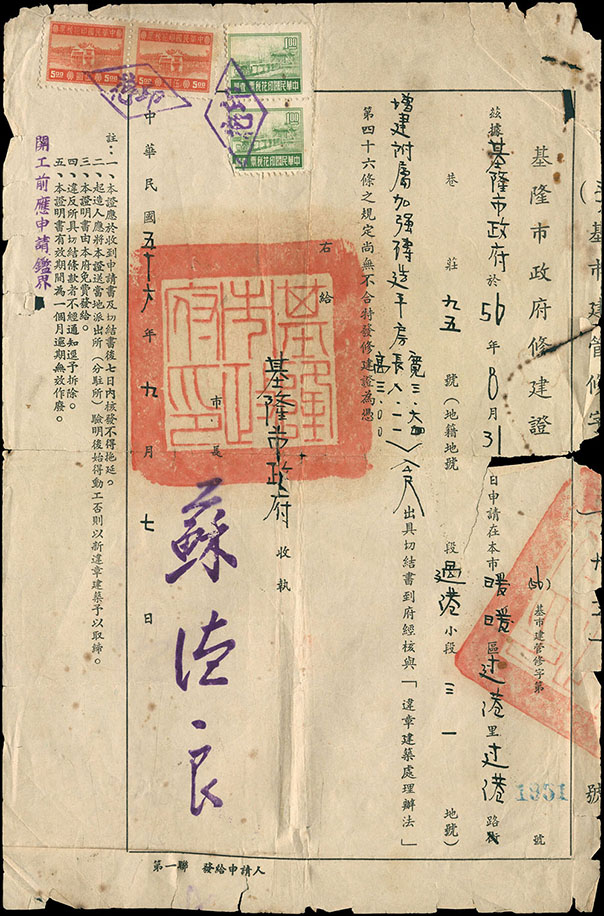 基市建管修字
號
基隆市政府修建證
(56)基市建管修字第 1951 號
茲據基隆市政府於56年8月31日申請在本市暖暖區过港里过港路街
巷 莊 九五 號(地籍地號 段過港小段三一 地號)
增建附屬加强磚造平房 寬三.六四 長八.一一 高三.00 公尺出具切結書到府經核與「違章建築處理辦法」
第四十六條之規定尚無不合特發修建證為憑
右給
基隆市政府 收執
市長 蘇德良
基隆市政府印
中華民國五十六年九月七日
註:一、本證應於收到申請書及切結書後七日內核發不得拖延。
二、起造人應將本證送當地派出所(分駐所)驗明後始得動工否則以新違章建築予以取締。
三、本證明書由本府免費發給。
四、違反所具切結條款者不經通知逕予拆除。
五、本證明書有效期間為一個月逾期無效作廢。
開工前應申請鑑界
第一聯 發給申請人
中華民國印花稅票
5.00
5.00
中華民國印花稅票
1.00
中華民國印花稅票
1.00